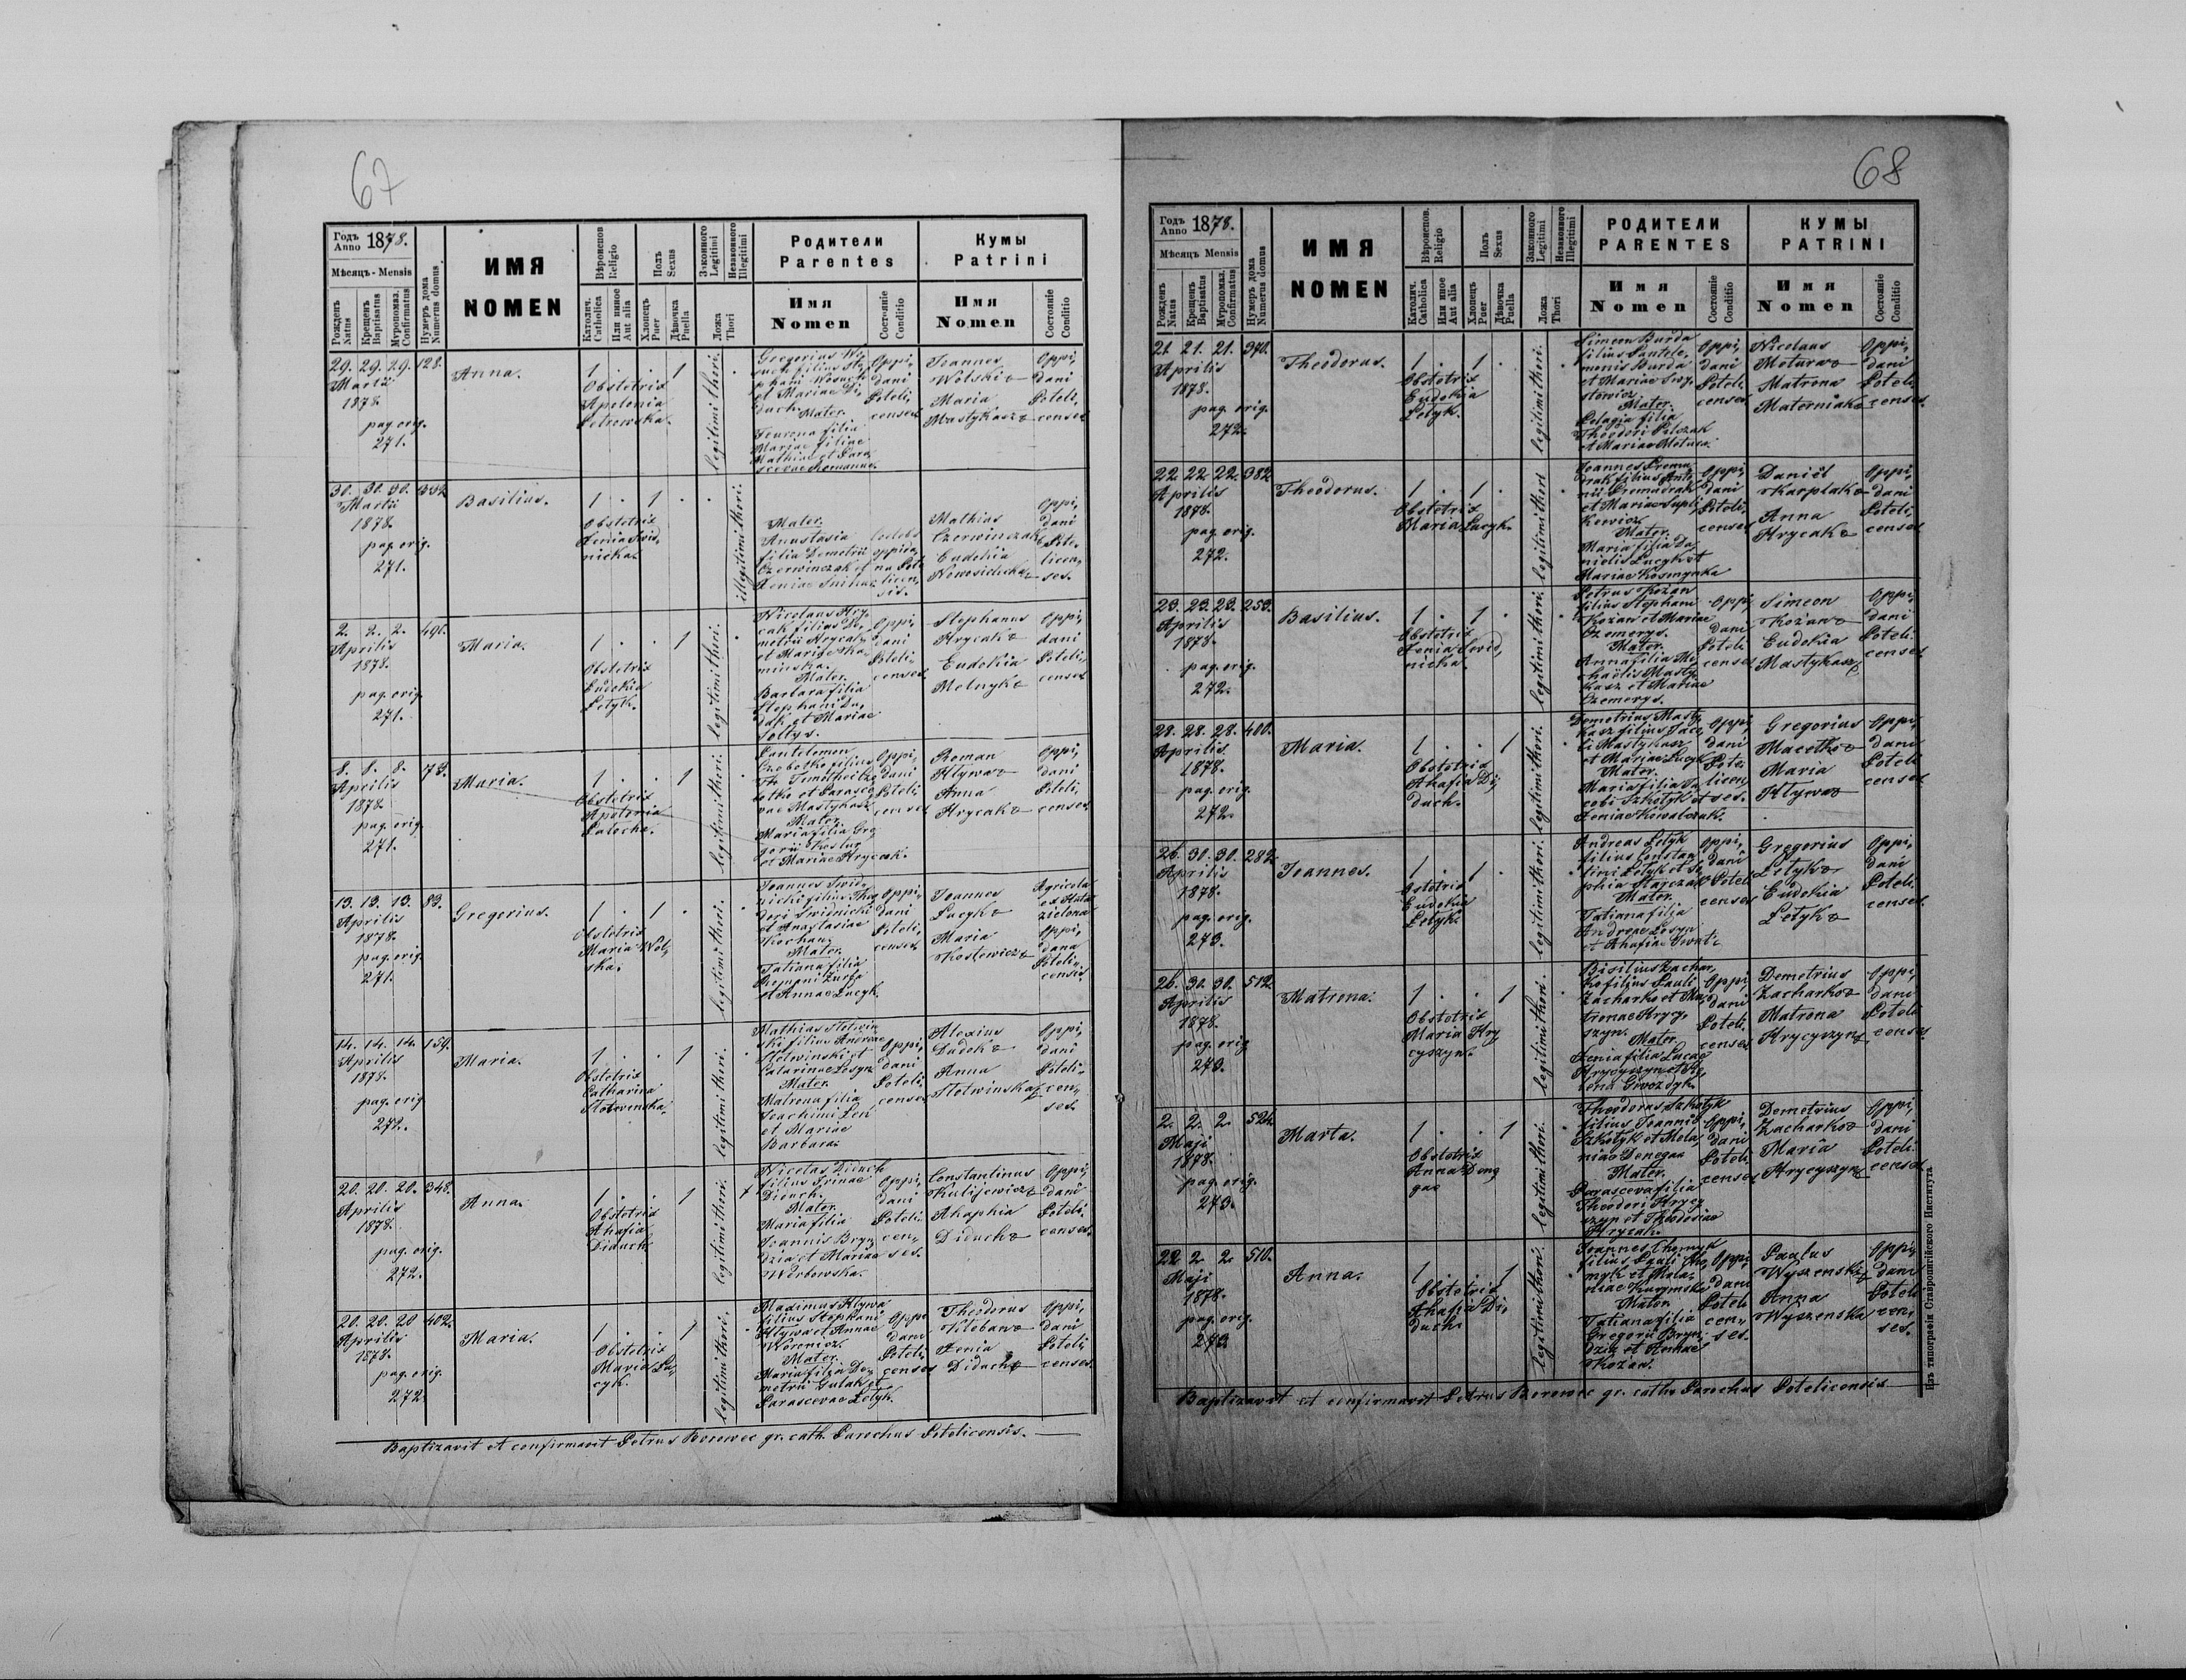 67
Годъ Anno 1878.
Мѣсяцъ - Mensis
Рожденъ Natus
Крещенъ Baptisatus
Мѵропомаз. Confirmatus
Нумеръ дома Numerus domus
ИМЯ
NOMEN
Вѣроиспов Religio
Католич. Catholica
Или иное Aut alia
Полъ Sexus
Хлопецъ Puer
Дѣвочка Puella
Законного Legitimi
Незаконного Illegitimi
Ложа Thori
Родители
Parentes
Имя
Nomen
Состояніе
Conditio
Кумы
Patrini
Имя
Nomen
Состояніе
Conditio
29. 29. 29. 128.
Martii
1878.
pag. orig.
271.
Anna.
1 . . 1
Obstetrix
Apolonia
Petrowska.
legitimi thori.
Mater.
Feurona filia
Mariae filiae
Oppi,
dani
Poteli,
censes
Joannes
Wolski &
Maria
Mastykasz &
Oppi,
dani
Poteli,
censes
30. 30. 30.
Martii
1878.
pag. orig.
271.
Basilius.
1 . 1 . .
Obstetrix
Fenia Swid,
nicka.
illegitimi thori.
Mater.
Anastasia
filia Demetrii
Czerwinczak et
Mathias
Czerwinczak &
Eudokia
Nowosielska &
Oppi,
dani
Pote,
licen,
ses.
2. 2. 2. 496.
Aprilis
1878.
pag. orig.
271.
Maria.
1 . . 1
Obstetrix
Eudokia
Letyk.
legitimi thori.
Nicolaus Hry,
cak filius De,
metrii Hrycak
et Mariae Ka,
minska.
Mater.
Barbara filia
Stephani Du,
dak et Mariae
Soltys.
Oppi,
dani
Poteli,
censes
Stephanus
Hrycak &
Eudokia
Melnyk &
Oppi,
dani
Poteli,
censes
8. 8. 8. 73.
Aprilis
1878.
pag. orig.
271.
Maria.
1 . . 1
Obstetrix
Apolonia
legitimi thori.
Pantelemon
Mater.
Maria filia Gre
gorii
et Mariae Hrycak.
Oppi,
dani
Poteli,
censes
Roman
Hlywa &
Anna
Hrycak &
Oppi,
dani
Poteli,
censes.
13. 13. 13. 83.
Aprilis
1878.
pag. orig.
271.
Gregorius.
1 . 1 .
Obstetrix
Maria Wol,
ska.
legitimi thori.
Joannes Swid,
nicki filius Theo,
dori Swidnicki
et Anastasiae
Kochan.
Mater.
Tatiana filia
Romani
et Annae Lucyk.
Oppi,
dani
Poteli,
censes
Joannes
Lucyk &
Maria
Kostewicz &
Agricola
ex Huta
zielona
Oppi,
dana
Poteli,
censis.
14. 14. 14. 159.
Aprilis
1878.
pag. orig.
272.
Maria.
1 . . 1
Obstetrix
Catharina
Slotwinska.
legitimi thori.
Mathias Slotwin
ski filius Andreae
Slotwinski et
Catarinae Lesyn
Mater.
Matrona filia
Joachimi Len
et Mariae
Barbara.
Oppi,
dani
Poteli,
censes
Alexius
Dudok &
Anna
Slotwinska &
Oppi,
dani
Poteli,
cen,
ses.
20. 20. 20. 348.
Aprilis
1878.
pag. orig.
272.
Anna.
1 . . 1
Obstetrix
Ahafia
Diduch.
legitimi thori.
Nicetas Diduch
filius Irinae
Diduch.
Mater.
Maria filia
Joannis Bryn,
dzia et Mariae
Werbowska.
Oppi,
dani
Poteli,
cen,
ses.
Constantinus
Kulijewicz &
Ahaphia
Diduch &
Oppi,
dani
Poteli,
censes.
20. 20. 20 402.
Aprilis
1878.
pag. orig.
272.
Maria.
1 . . 1
Obstetrix
Maria Lu,
cyk.
legitimi thori.
Maximus Hlywa
filius Stephani
Hlywa et Annae
Woronicz.
Mater.
Maria filia De,
metrii Gulak et
Parascevae Letyk.
Oppi,
dani
Poteli,
censes
Theodorus
Fenia
Diduch &
Oppi,
dani
Poteli,
censes.
Baptizavit et confirmavit Petrus Borowec gr. cath. Parochus Potelicensis.
68
Годъ Anno 1878.
Мѣсяцъ Mensis
Рожденъ Natus
Крещенъ Baptisatus
Мѵропомаз. Confirmatus
Нумеръ дома Numerus domus
ИМЯ
NOMEN
Вѣроиспов. Religio
Католич. Catholica
Или иное Aut alia
Полъ Sexus
Хлопецъ Puer
Дѣвочка Puella
Законного Legitimi
Незаконного Illegitimi
Ложа Thori
РОДИТЕЛИ
PARENTES
Имя
Nomen
Состояніе
Conditio
КУМЫ
PATRINI
Имя
Nomen
Состояніе
Conditio
21. 21. 21. 370.
Aprilis
1878.
pag. orig.
272.
Theodorus.
1 . 1 .
Obstetrix
Eudokia
Letyk.
legitimi thori.
Simeon Burda
filius Pantele,
monis Burda
et Mariae
Mater.
Pelagia filia
Theodori
et Mariae
Oppi,
dani
Poteli,
censes
Nicolaus
Motura &
Matrona
Materniak &
Oppi,
dani
Poteli,
censes.
22. 22. 22. 382.
Aprilis
1878.
pag. orig.
272.
Theodorus.
1 . 1 .
Obstetrix
Maria Lucyk.
legitimi thori
Mater.
Maria filia Da,
nielis Lucyk et
Mariae Kosmynka
Oppi,
dani
Poteli,
censes
Daniel
Karplak &
Anna
Hrycak &
Oppi,
dani
Poteli,
censes
23. 23. 23. 253.
Aprilis
1878.
pag. orig.
272.
Basilius.
1 . 1 .
Obstetrix
Fenia Swid,
nicka.
legitimi thori.
Petrus Kozan
filius Stephani
Kozan et Mariae
Czemerys.
Mater.
Anna filia Mi,
chaëlis Masty,
kasz et Mariae
Czemerys.
Oppi,
dani
Poteli,
censes
Simeon
Kozan &
Eudokia
Mastykasz &
Oppi,
dani
Poteli,
censes
28. 28. 28. 400.
Aprilis
1878.
pag. orig.
272.
Maria.
1 . . 1
Obstetrix
Ahafia Di,
duch.
legitimi thori.
Demetrius Masty,
kasz filius Jaco,
bi Mastykasz
et Mariae Lucyk
Mater.
Maria filia Ja,
cobi Szkolyk et
Feniae Kowalczuk.
Oppi,
dani
Pote,
licen,
ses.
Gregorius
Macetko &
Maria
Hlywa &
Oppi,
dani
Poteli,
censes
26. 30. 30. 282.
Aprilis
1878.
pag. orig.
273.
Joannes.
1 . 1 .
Ostetrix
Eudokia
Letyk.
legitimi thori.
Andreas Letyk
filius Constan
tini Letyk et So
phia Starczak
Mater.
Tatiana filia
Andreae Lesyn
et Ahafiae
Oppi,
dani
Poteli,
censes
Gregorius
Letyk &
Eudokia
Letyk &
Oppi,
dani
Poteli,
censes
26. 30. 30. 512.
Aprilis
1878.
pag. orig.
273.
Matrona.
1 . . 1
Obstetrix
Maria Hry
cyszyn.
legitimi thori.
Basilius Zachar,
ko filius Pauli
Zacharko et Ma,
tronae Hrycy,
szyn.
Mater.
Fenia filia Lucae
Hrycyszyn et He,
lena Gwozdyk.
Oppi,
dani
Poteli,
censes
Demetrius
Zacharko &
Matrona
Hrycyszyn &
Oppi,
dani
Poteli,
censes
2. 2. 2. 526.
Maji
1878.
pag. orig.
273.
Marta.
1 . . 1
Obstetrix
Anna Deng
gae
legitimi thori.
Theodorus Szkolyk
filius Joannis
Szkolyk et Mela,
niae Denegaa
Mater.
Parasceva filia
Theodori Hrycy
szyn et Theodosiae
Hrycak.
Oppi,
dani
Poteli,
censes
Demetrius
Zacharko &
Maria
Hrycyszyn &
Oppi,
dani
Poteli,
censes
22 2 2. 510.
Maji
1878.
pag. orig.
273.
Anna.
1 . . 1
Obstetrix
Ahafia Di,
duch.
legitimi thori.
Joannes
filius Pauli
Mater.
Tatiana filia
Gregorii Bryn,
dzia et Annae
Kozan.
Oppi,
dani
Poteli
cen,
ses.
Paulus
Wyszenski &
Anna
Wyszenska
Oppi,
dani
Poteli
cen,
ses.
Baptizavit et confirmavit Petrus Borowec gr. cath. Parochus Potelicensis
Изъ типографіи Ставропигійского Института